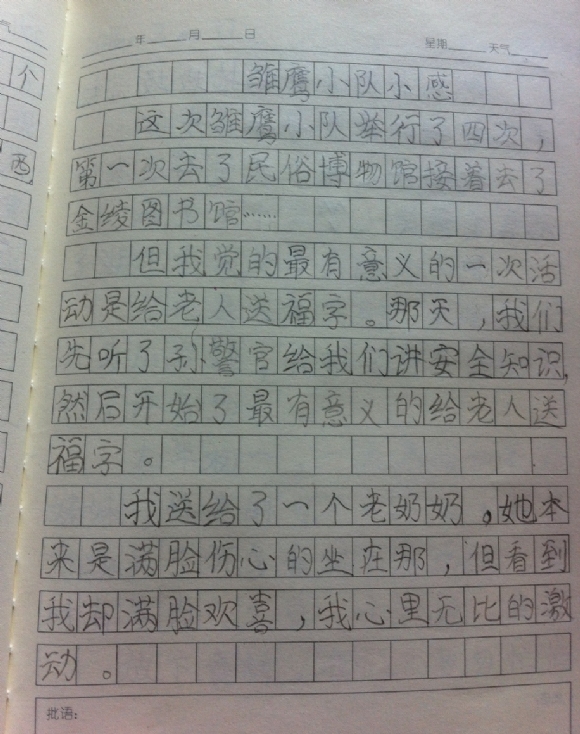 年 月 日 星期 天气
雏鹰小队小感
这次雏鹰小队举行了四次，
第一次去了民俗博物馆接着去了
金绫图书馆……
但我觉的最有意义的一次活
动是给老人送福字。那天，我们
先听了孙警官给我们讲安全知识，
然后开始了最有意义的给老人送
福字。
我送给了一个老奶奶。她本
来是满脸伤心的坐在那，但看到
我却满脸欢喜，我心里无比的激
动。
批语：
气
个
西